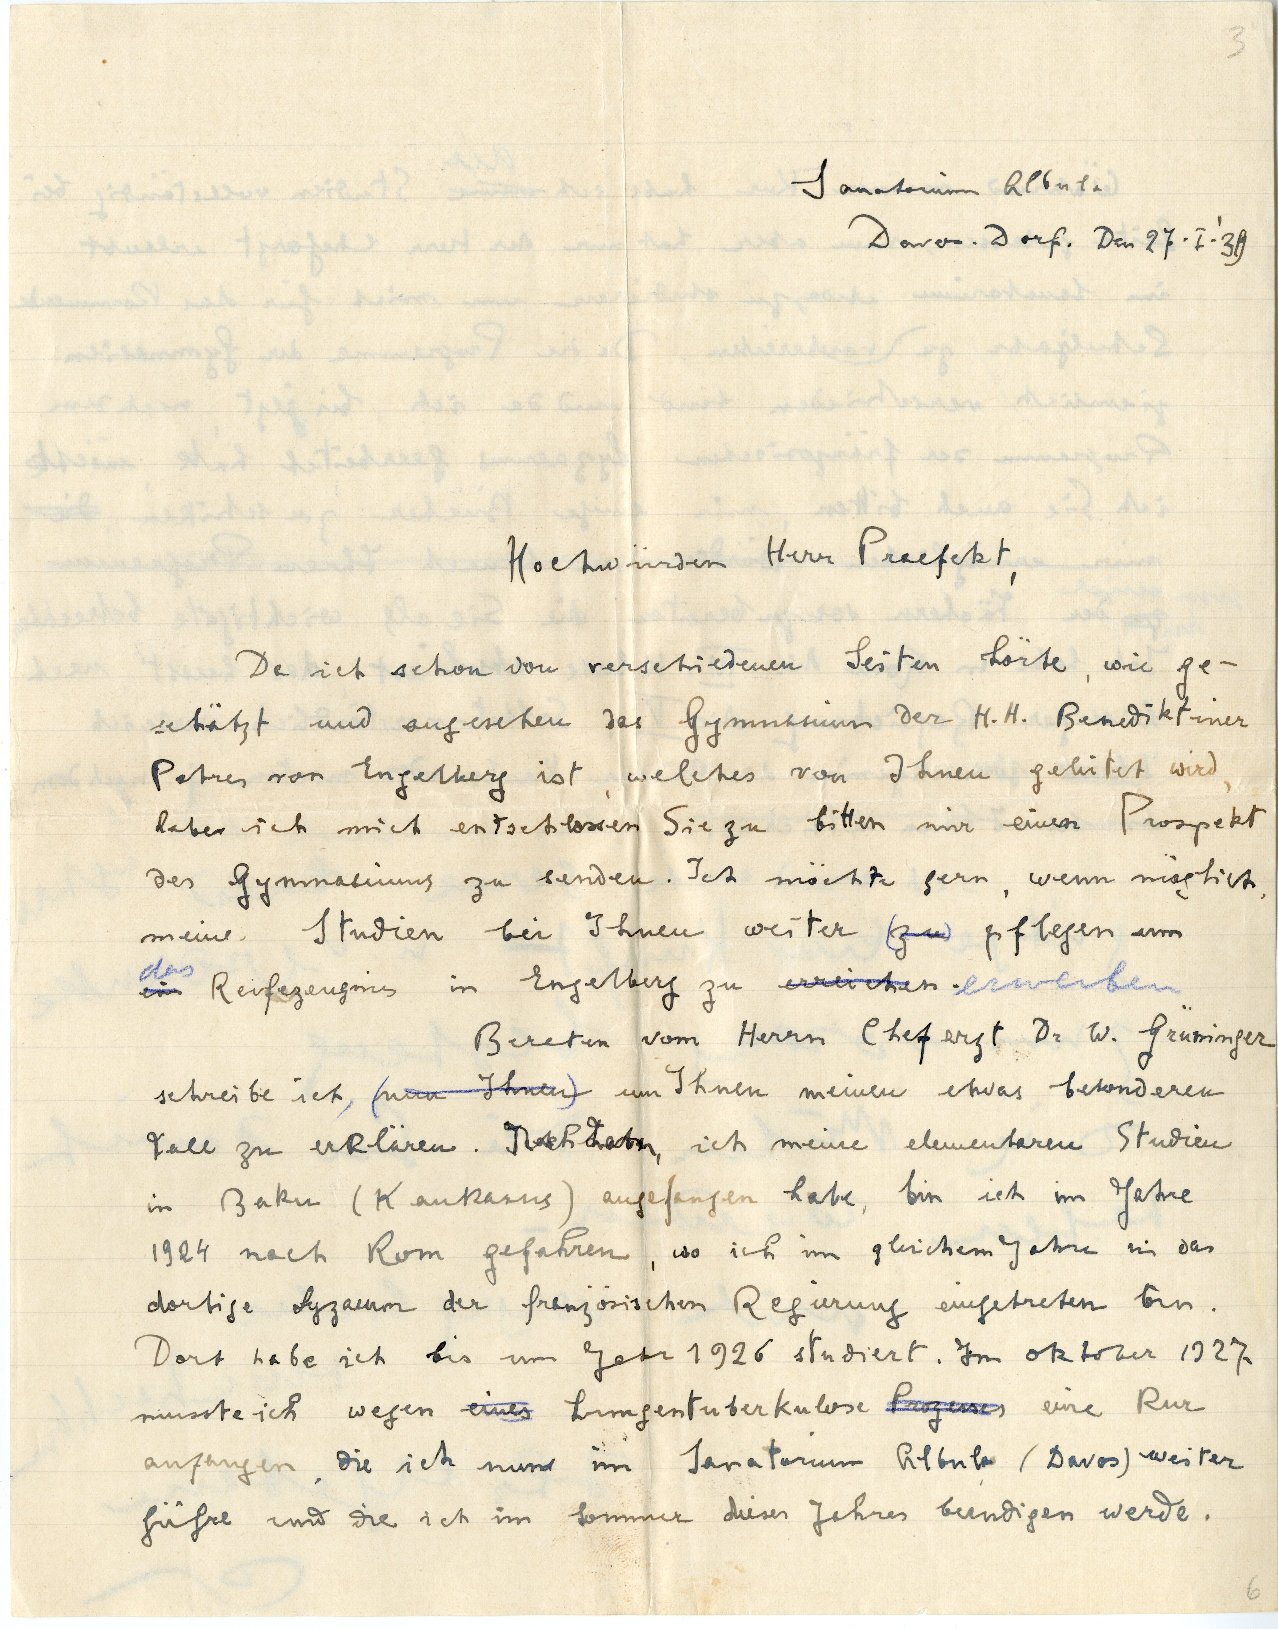 3
Sanatorium Albula
Davos-Dorf. Den 27.I.'30
Hochwürden Herr Praefekt,
Da ich schon von verschiedenen Seiten hörte, wie ge-
schätzt und angesehen das Gymnasium der H.H. Benediktiner
Patres von Engelberg ist, welches von Ihnen geleitet wird,
habe ich mich entschlossen Sie zu bitten mir einen Prospekt
des Gymnasiums zu senden. Ich möchte gern, wenn möglich,
meine Studien bei Ihnen weiter (zu) pflegen um
das
ein Reifezeugnis in Engelberg zu erreichen. erwerben
Beraten vom Herrn Chefarzt Dr W. Grüninger
schreibe ich, (um Ihnen) um Ihnen meinen etwas besonderen
Fall zu erklären. Nachdem, ich meine elementaren Studien
in Baku (Kaukasus) angefangen habe, bin ich im Jahre
1924 nach Rom gefahren, wo ich im gleichem Jahre in das
dortige Lyzaeum der französischen Regierung eingetreten bin.
Dort habe ich bis um Jahr 1926 studiert. Im oktober 1927
musste ich wegen eines Lungentuberkulose Prozesses eine Kur
anfangen, die ich nun im Sanatorium Albula (Davos) weiter
führe und die ich im Sommer dieses Jahres beendigen werde.
6